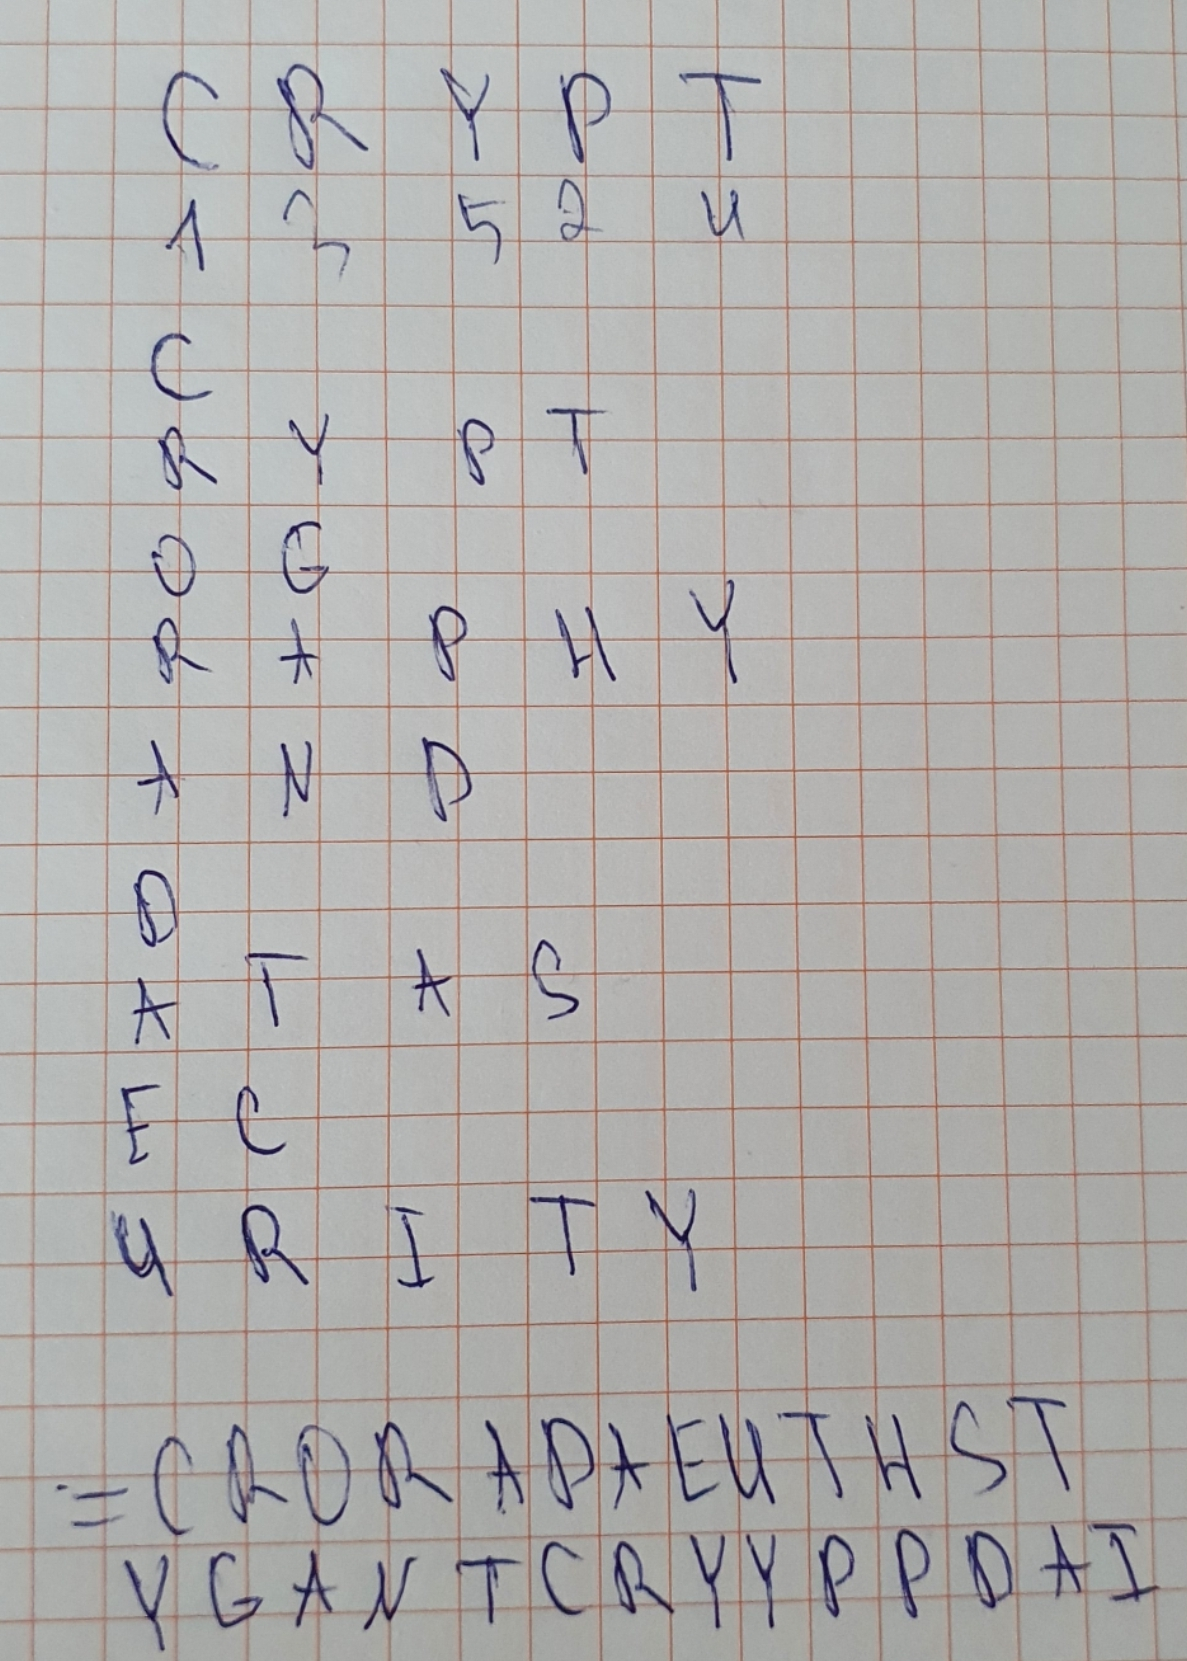 C R Y P T
1 3 5 2 4
C
R Y P T
O G
R A P H Y
A N D
D
A T A S
E C
U R I T Y
:= C R O R A D A E U T H S T
Y G A N T C R Y Y P P D A I